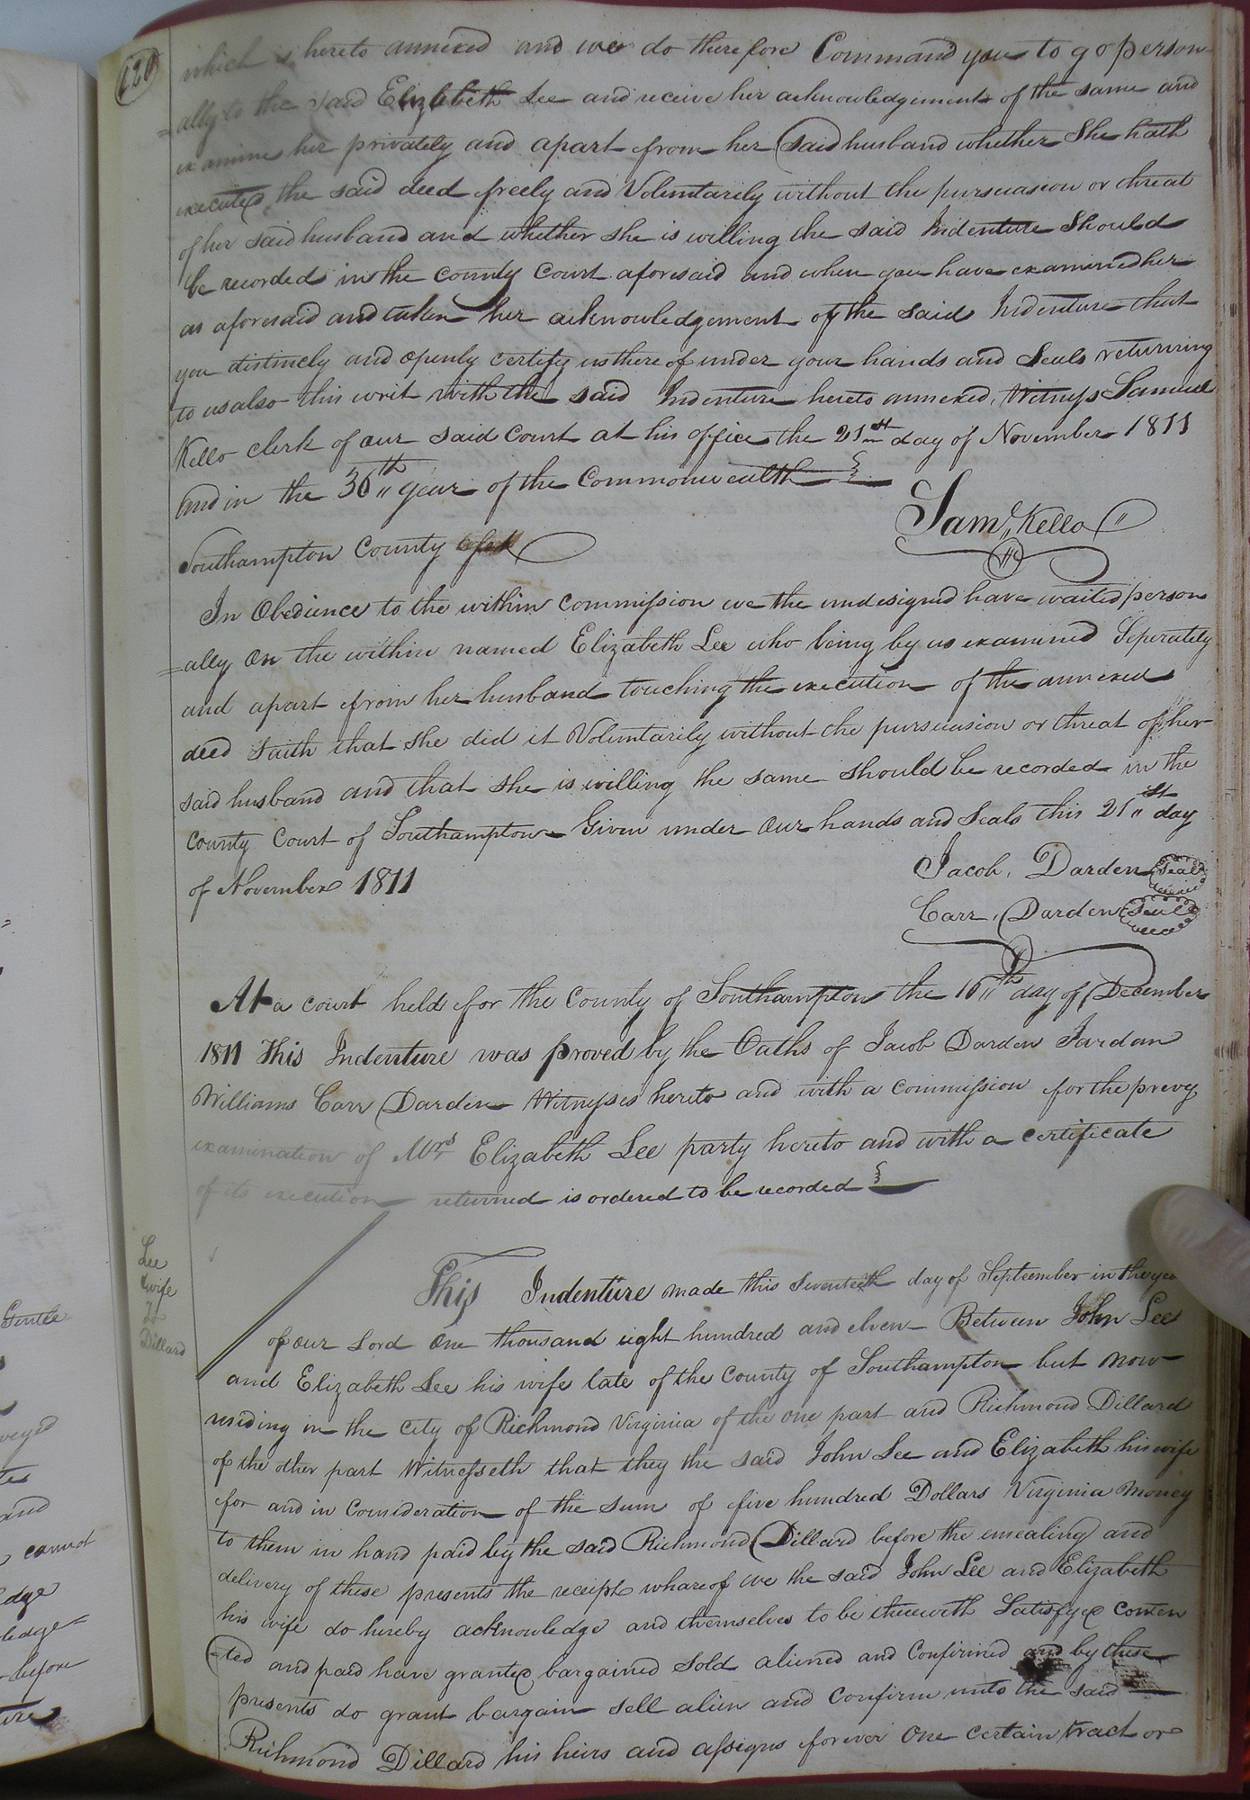 220
which is hereto annexed and we do therefore Command you to go person
=ally to the said Elizabeth Lee and receive her acknowledgement of the same and
examine her privately and apart from her said husband whether She hath
executed the said deed freely and Voluntarily without the pursuasion or threat
of her said husband and whether she is willing the said Indenture Should
be recorded in the county Court aforesaid and when you have examined her
as aforesaid and taken her acknowledgement of the said Indenture that
you distinctly and openly certify us thereof under your hands and Seals returning
to us also this writ with the said Indenture hereto annexed, Witness Samuel
Kello clerk of our said Court at his office the 21st day of November 1811
and in the 36th year of the Commonwealth
Saml. Kello
Southampton County
In Obedience to the within commission we the undesigned have waited person
=ally On the within named Elizabeth Lee who being by us examined Seperately
and apart from her husband touching the execution of the annexed
deed Saith that she did it Voluntarily without the pursuasion or threat of her
said husband and that she is willing the same should be recorded in the
County Court of Southampton Given under our hands and Seals this 21st day
of November 1811
Jacob, Darden Seal
Carr, Darden Seal
At a court held for the County of Southampton the 16th day of December
1811 This Indenture was proved by the Oaths of Jacob Darden Jordan
Williams Carr Darden Witnesses hereto and with a commission for the prevy
examination of Mrs Elizabeth Lee party hereto and with a certificate
of its execution returned is ordered to be recorded
Lee
& wife
To
Dillard
This Indenture made this Seventeeth day of September in the yea
of our Lord One thousand eight hundred and eleven Between John Lee
and Elizabeth Lee his wife late of the County of Southampton but now
residing in the City of Richmond Virginia of the one part and Richmond Dillard
of the other part Witnesseth that they the said John Lee and Elizabeth his wife
for and in Consideration of the sum of five hundred Dollars Virginia Money
to them in hand paid by the said Richmond Dillard before the unsealing and
delivery of these presents the receipt whareof we the said John Lee and Elizabeth
his wife do hereby acknowledge and themselves to be therewith Satisfyed conten
-ted and paid have granted bargained Sold aliened and Confirmed and by these
presents do grant bargain sell alien and confirm unto the said
Richmond Dillard his heirs and assigns forever One certain tract or